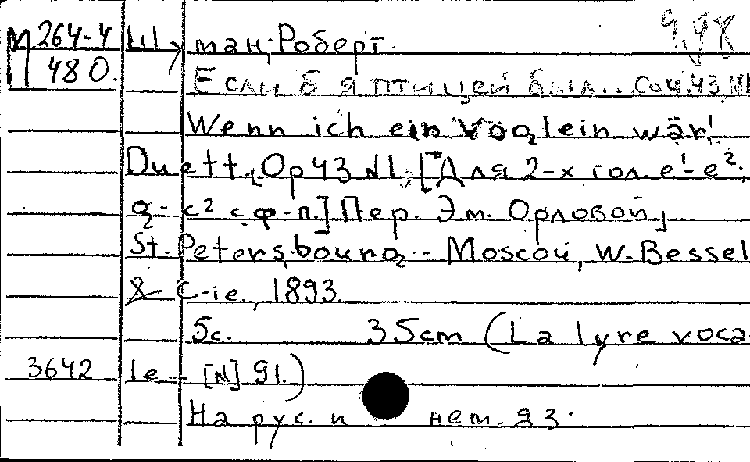 М 264-4 Шуман, Роберт.
480. Если б я птицей был.. Соч.43,№1
Wenn ich ein Vöglein wär!
Duett, Op 43 №1. [Для 2-х гол. e¹-e².
g-c² с ф-п.] Пер. Эм. Орловой,
St. Petersbourg - Moscou, W. Bessel
& C-ie., 1893.
5с. 35cm (La lyre voca-
3642 le [№] 91.)
На рус. и нем. яз.